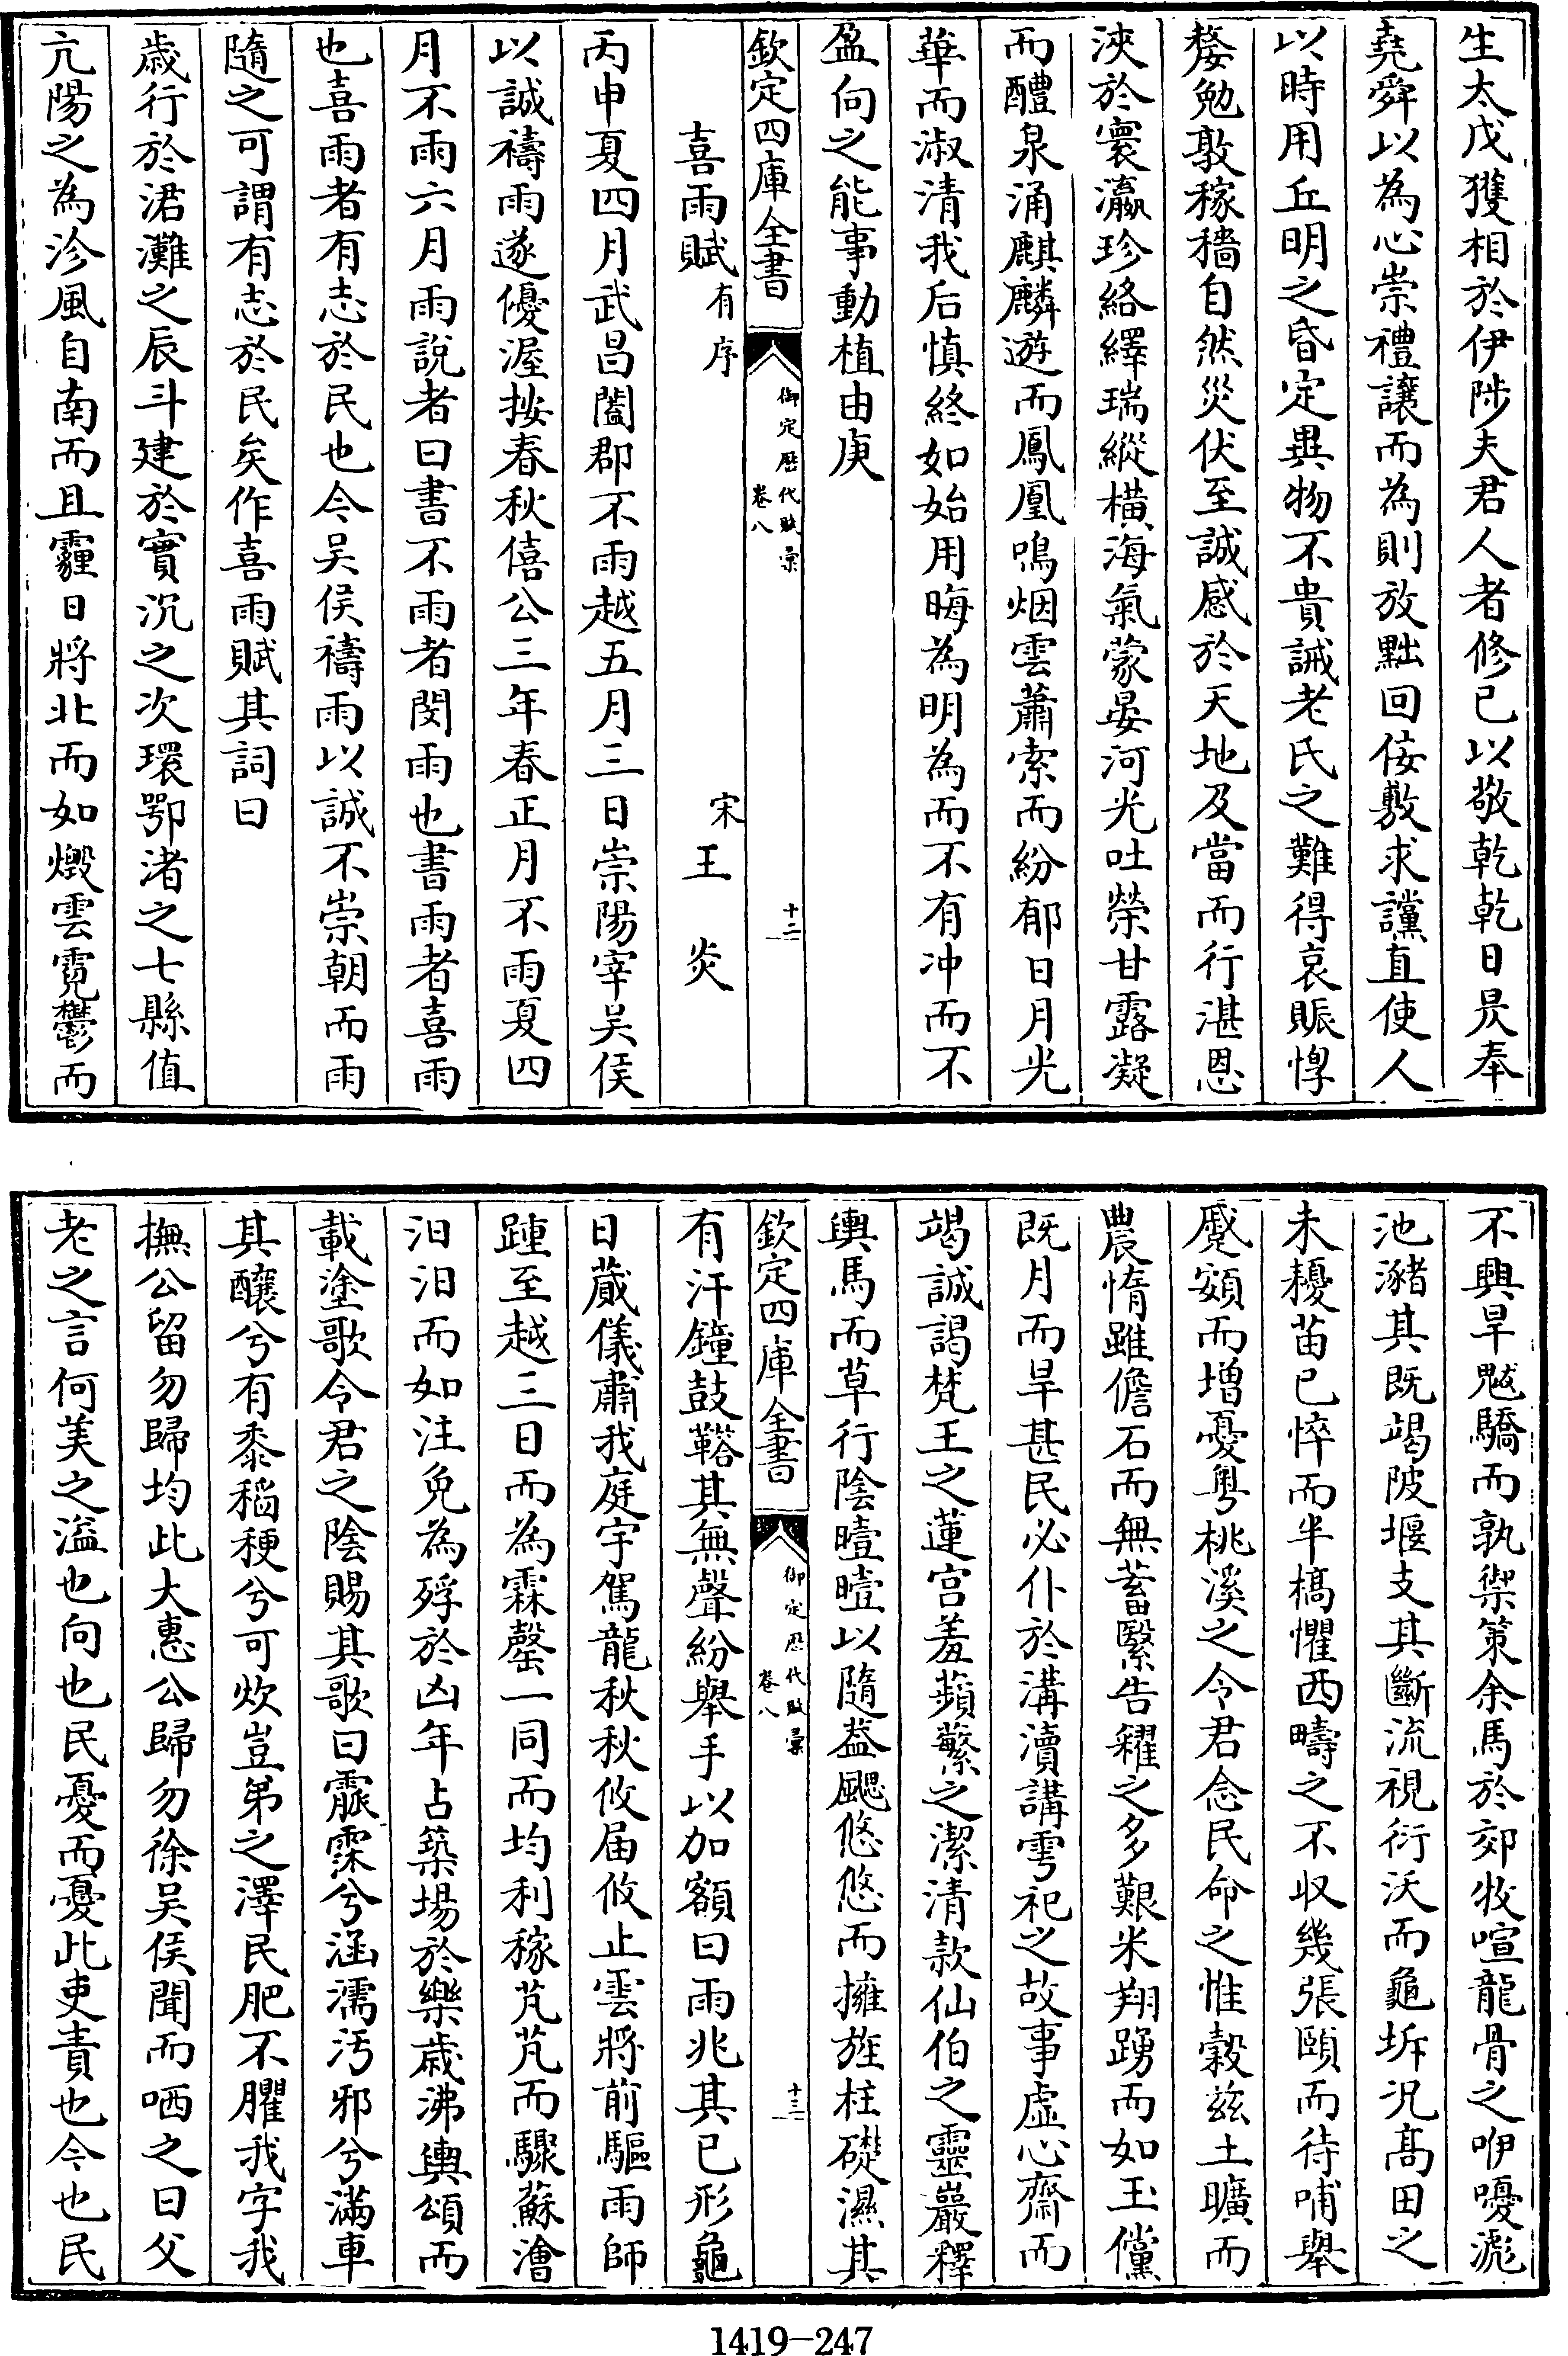 生太戊獲相於伊陟夫君人者修已以敬乾乾日昃奉
堯舜以為心崇禮讓而為則放黜回佞敷求讜直使人
以時用丘明之昏定畀物不貴誡老氏之難得哀賑惸
嫠勉敦稼穡自然災伏至誠感於天地及當而行湛恩
浹於寰瀛珍絡繹瑞縱橫海氣蒙晏河光吐榮甘露凝
而醴泉涌麒麟遊而鳳凰鳴烟雲蕭索而紛郁日月光
華而淑清我后慎終如始用晦為明為而不有冲而不
盈向之能事動植由庚
欽定四庫全書
御定歷代賦彙
卷八
十二
喜雨賦有序
宋王炎
丙申夏四月武昌闔郡不雨越五月三日崇陽宰吴侯
以誠禱雨遂優渥按春秋僖公三年春正月不雨夏四
月不雨六月雨說者曰書不雨者閔雨也書雨者喜雨
也喜雨者有志於民也今吴侯禱雨以誠不崇朝而雨
隨之可謂有志於民矣作喜雨賦其詞曰
歲行於涒灘之辰斗建於實沉之次環鄂渚之七縣值
亢陽之為沴風自南而且霾日將北而如燬雲霓鬱而
不興旱魃驕而孰禦策余馬於郊牧喧龍骨之咿嚘滮
池瀦其既竭陂堰支其斷流視衍沃而龜坼況髙田之
未耰苗已悴而半槁懼西疇之不収幾張頤而待哺舉
蹙頞而增憂粤桃溪之令君念民命之惟穀兹土曠而
農惰雖儋石而無蓄緊告糴之多艱米翔踴而如玉儻
既月而旱甚民必仆於溝瀆講雩祀之故事虛心齋而
竭誠謁梵王之蓮宫羞蘋蘩之潔清款仙伯之靈巖釋
輿馬而草行陰曀曀以隨葢飀悠悠而擁旌柱礎濕其
欽定四庫全書
御定歷代賦彙
卷八
十三
有汗鐘鼓鞳其無聲紛舉手以加額曰雨兆其已形龜
日蕆儀肅我庭宇駕龍秋秋攸届攸止雲將前驅雨師
踵至越三日而為霖罄一同而均利稼芃芃而驟蘇澮
汩汩而如注免為殍於凶年占築場於樂歲沸輿頌而
載塗歌令君之陰賜其歌曰霢霂兮涵濡汚邪兮滿車
其釀兮有黍稻稉兮可炊豈弟之澤民肥不臞我字我
撫公留勿歸均此大惠公歸勿徐吴侯聞而哂之曰父
老之言何美之溢也向也民憂而憂此吏責也今也民
1419-247